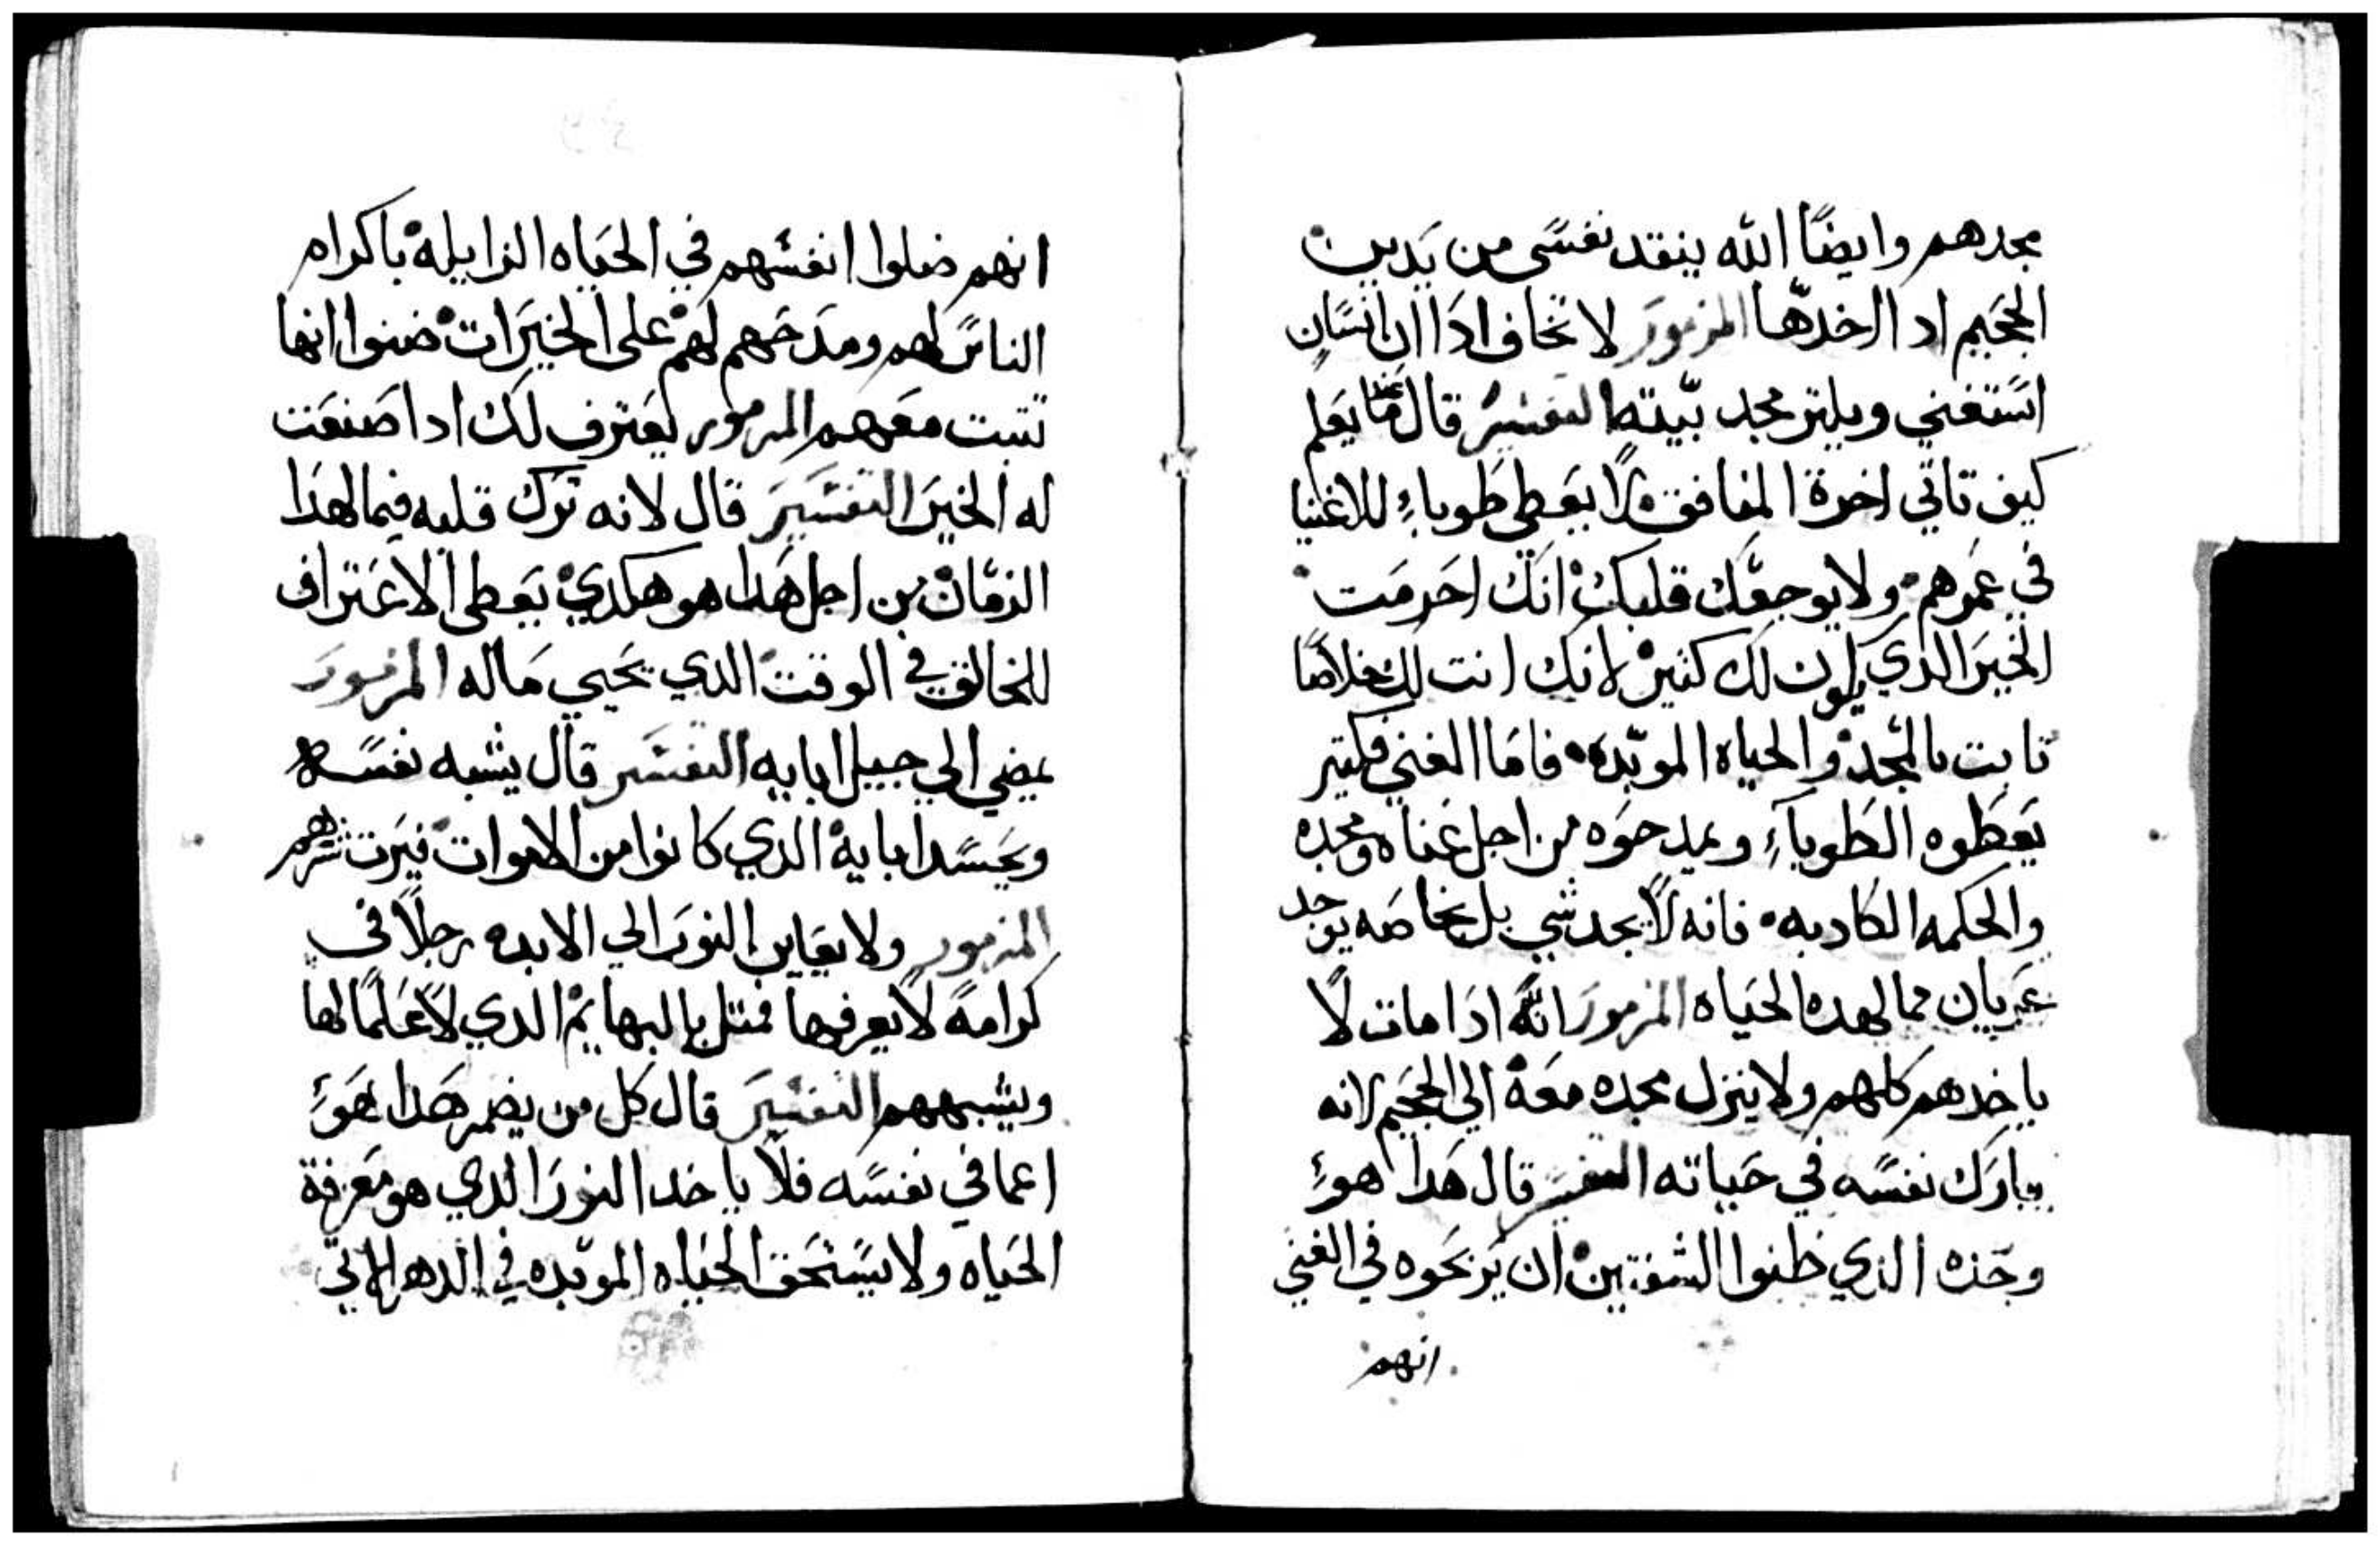 مجدهم وايضًا الله ينقد نفسي من يدين
الجحيم اد اخدها المزمور لا تخاف ادا ان انسان
استغني ويلتر مجد بيته التفسير قال عما يعلم
كيف تاتي اخرة المنافق لا يعطي طوباء للاغنيا
في عمرهم ولا يوجعك قلبك انك احرمت
الخير الدي يكون لك كتير لانك انت لك خلاصا
تابت بالمجد والحياه الموبده فاما الغني فكتير
يعطوه الطوباء ويمدحوه من اجل غناه ومجده
والحكمه الكادبه فانه لا يجد شي بل بخاصه يوجد
عريان مما لهده الحياه المزمور انه ادا مات لا
ياخدهم كلهم ولا ينزل مجده معه الي الجحيم لانه
يبارك نفسه في حياته التفسير قال هدا هو
وحده الدي ظنوا الشفتين ان يربحوه في الغني
انهم
انهم ضلوا انفسهم في الحياه الزايله باكرام
الناس لهم ومدحهم لهم على الخيرات ضنوا انها
تتبت معهم المزمور يعترف لك ادا صنعت
له الخير التفسير قال لانه ترك قلبه فيما لهدا
الزمان من اجل هدا هو هكدي يعطى الاعتراف
للخالق في الوقت الدي يحيي ماله المزمور
يمضي الي جييل ابايه التفسير قال يشبه نفسه
ويحسد ابايه الدي كانوا من الاموات فيرت شرهم
المزمور ولا يعاين النور الي الابده رجلاً في
كرامة لا يعرفها فمتل بالبهايم الدي لا علمًا لها
ويشبههم التفسير قال كل من يضمر هدا هو
اعما في نفسه فلا ياخد النور الدي هو معرفة
الحياه ولا يستحق الحياه الموبده في الدهر الاتي